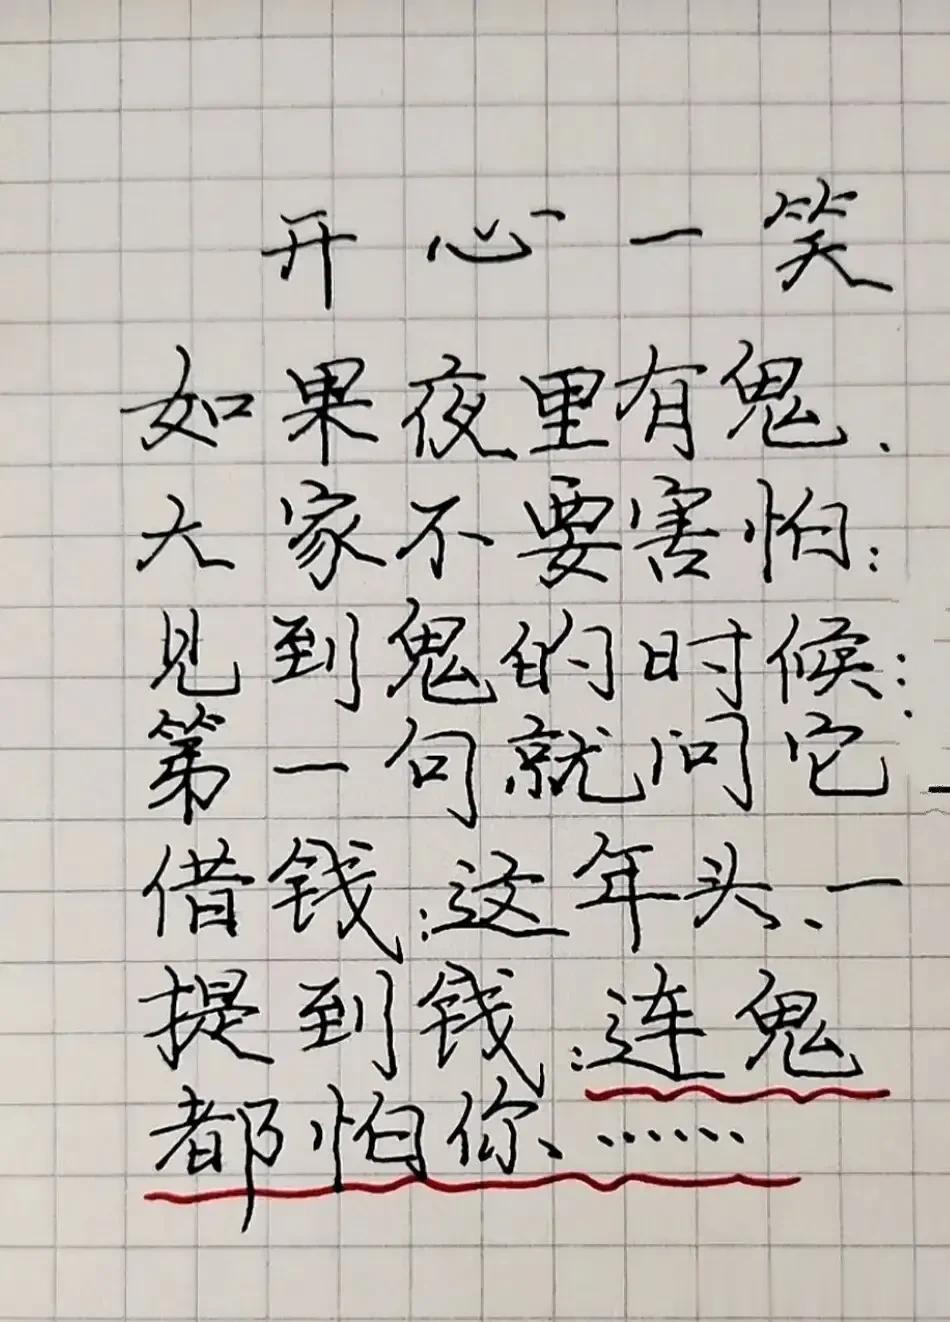 开心一笑
如果夜里有鬼.
大家不要害怕:
见到鬼的时候:
第一句就问它
借钱:这年头、一
提到钱:连鬼
都怕你、……